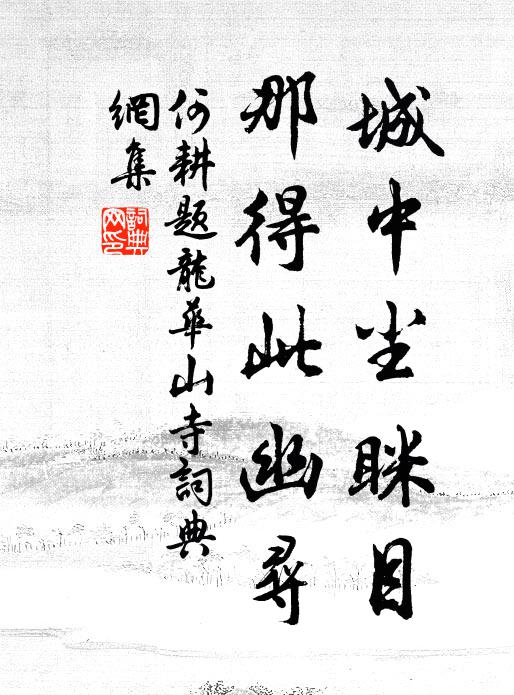 城中尘眯目
那得此幽尋
何耕題龍華山寺詞典
網集
詞典
网印